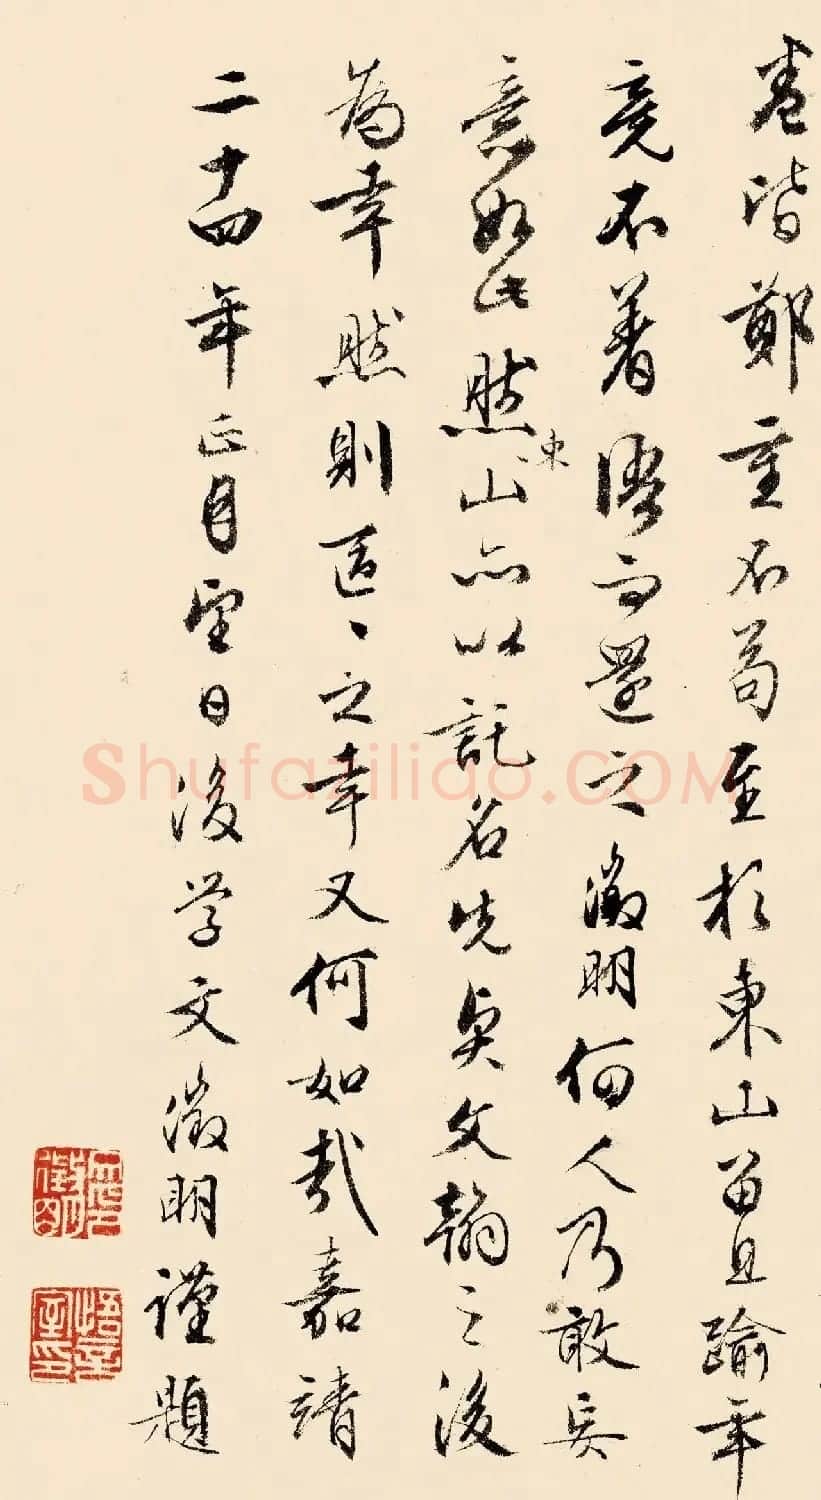 卷皆鄭重不苟至於東山留且踰年
竟不著語而還之徵明何人乃敢妄
意如此然東山亦以託名先文翰之後
為幸然則區〻之幸又何如哉嘉靖
二十四年正月望日後學文徵明謹題
悟言室印
Shufaziliao.COM